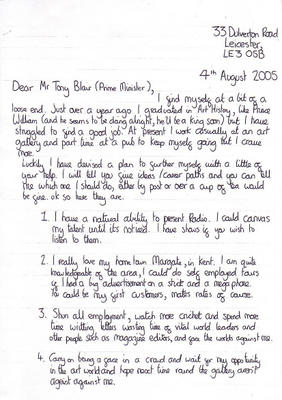 33 Dulverton Road
Leicester,
LE3 0SB
4th August 2005
Dear Mr Tony Blair (Prime Minister),
I find myself at a bit of a
loose end. Just over a year ago I graduated in Art History, like Prince
William (and he seems to be doing alright, he'll be a king soon) but I have
struggled to find a good job. At present I work casually at an art
gallery and part time at a pub to keep myself going but I crave
more.
Luckily I have devised a plan to further myself with a little of
your help. I will tell you five ideas / career paths and you can tell
me which one I should do, either by post or over a cup of tea would
be fine. ok so here they are.
1. I have a natural ability to present Radio. I could canvas
my talent until its noticed. I have stars if you wish to
listen to them.
2. I really love my home town Margate, in kent. I am quite
knowledgeable of the area, I could do self employed tours
if I had a big advertisement on a stick and a megaphone.
You could be my first customers, mates rates of course.
3. Shun all employment, watch more cricket and spend more
time writing letters wasting time of vital world leaders and
other people such as magazine editors, and gove the worlds against me.
4. Carry on being a face in a crowd and wait for my opportunity
in the art world and hope next time round the gallery aren't
against me.